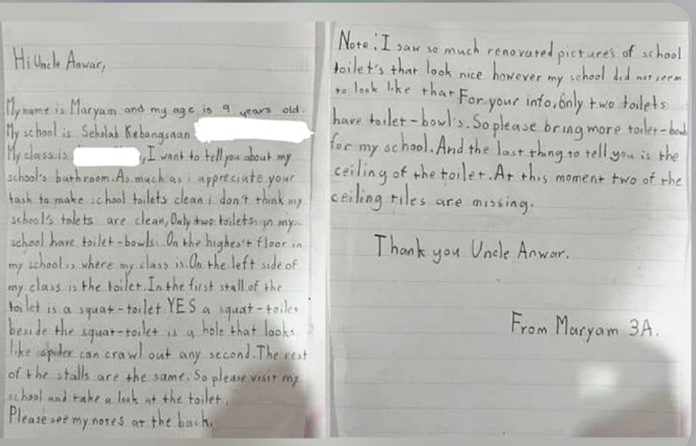 Hi Uncle Anwar,
My name is Maryam and my age is 9 years old.
My school is Sekolah Kebangsaan
My class is , I want to tell you about my
school's bathroom. As much as i appreciate your
task to make school toilets clean i don't think my
school's tolets are clean, Only two toilets in my
school have toilet-bowls. On the highest floor in
my school is where my class is. On the left side of
my class is the toilet. In the first stall of the
toilet is a squat-toilet YES a squat-toilet
beside the squat-toilet is a hole that looks
like spider can crawl out any second. The rest
of the stalls are the same. So please visit my
school and take a look at the toilet.
Please see my notes at the back.
Note: I saw so much renovated pictures of school
toilet's that look nice however my school did not seem
to look like that For your info, only two toilets
have toilet-bowl's. So please bring more toilet-bowl
for my school. And the last thing to tell you is the
ceiling of the toilet. At this moment two of the
ceiling tiles are missing.
Thank you Uncle Anwar.
From Maryam 3A.